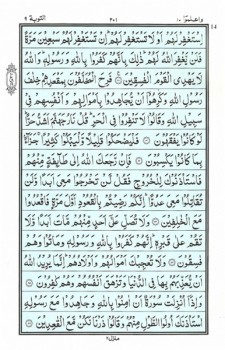 واعلموٓا ١٠ ٢٠١ التوبة ٩
اِسْتَغْفِرْ لَهُمْ اَوْ لَا تَسْتَغْفِرْ لَهُمْ اِنْ تَسْتَغْفِرْ لَهُمْ سَبْعِيْنَ مَرَّةً
فَلَنْ يَّغْفِرَ اللّٰهُ لَهُمْ ذٰلِكَ بِاَنَّهُمْ كَفَرُوْا بِاللّٰهِ وَرَسُوْلِهٖ وَاللّٰهُ
لَا يَهْدِى الْقَوْمَ الْفٰسِقِيْنَ فَرِحَ الْمُخَلَّفُوْنَ بِمَقْعَدِهِمْ خِلٰفَ
رَسُوْلِ اللّٰهِ وَكَرِهُوْٓا اَنْ يُّجَاهِدُوْا بِاَمْوَالِهِمْ وَاَنْفُسِهِمْ فِيْ
سَبِيْلِ اللّٰهِ وَقَالُوْا لَا تَنْفِرُوْا فِى الْحَرِّ قُلْ نَارُ جَهَنَّمَ اَشَدُّ حَرًّا
لَوْ كَانُوْا يَفْقَهُوْنَ فَلْيَضْحَكُوْا قَلِيْلًا وَّلْيَبْكُوْا كَثِيْرًا جَزَآءً
بِمَا كَانُوْا يَكْسِبُوْنَ فَاِنْ رَّجَعَكَ اللّٰهُ اِلٰى طَآئِفَةٍ مِّنْهُمْ
فَاسْتَاْذَنُوْكَ لِلْخُرُوْجِ فَقُلْ لَّنْ تَخْرُجُوْا مَعِيَ اَبَدًا وَّلَنْ
تُقَاتِلُوْا مَعِيَ عَدُوًّا اِنَّكُمْ رَضِيْتُمْ بِالْقُعُوْدِ اَوَّلَ مَرَّةٍ فَاقْعُدُوْا
مَعَ الْخٰلِفِيْنَ وَلَا تُصَلِّ عَلٰٓى اَحَدٍ مِّنْهُمْ مَّاتَ اَبَدًا وَّلَا
تَقُمْ عَلٰى قَبْرِهٖ اِنَّهُمْ كَفَرُوْا بِاللّٰهِ وَرَسُوْلِهٖ وَمَاتُوْا وَهُمْ
فٰسِقُوْنَ وَلَا تُعْجِبْكَ اَمْوَالُهُمْ وَاَوْلَادُهُمْ اِنَّمَا يُرِيْدُ اللّٰهُ
اَنْ يُّعَذِّبَهُمْ بِهَا فِى الدُّنْيَا وَتَزْهَقَ اَنْفُسُهُمْ وَهُمْ كٰفِرُوْنَ
وَاِذَآ اُنْزِلَتْ سُوْرَةٌ اَنْ اٰمِنُوْا بِاللّٰهِ وَجَاهِدُوْا مَعَ رَسُوْلِهِ
اسْتَاْذَنَكَ اُولُوا الطَّوْلِ مِنْهُمْ وَقَالُوْا ذَرْنَا نَكُنْ مَّعَ الْقٰعِدِيْنَ
منزل ٢